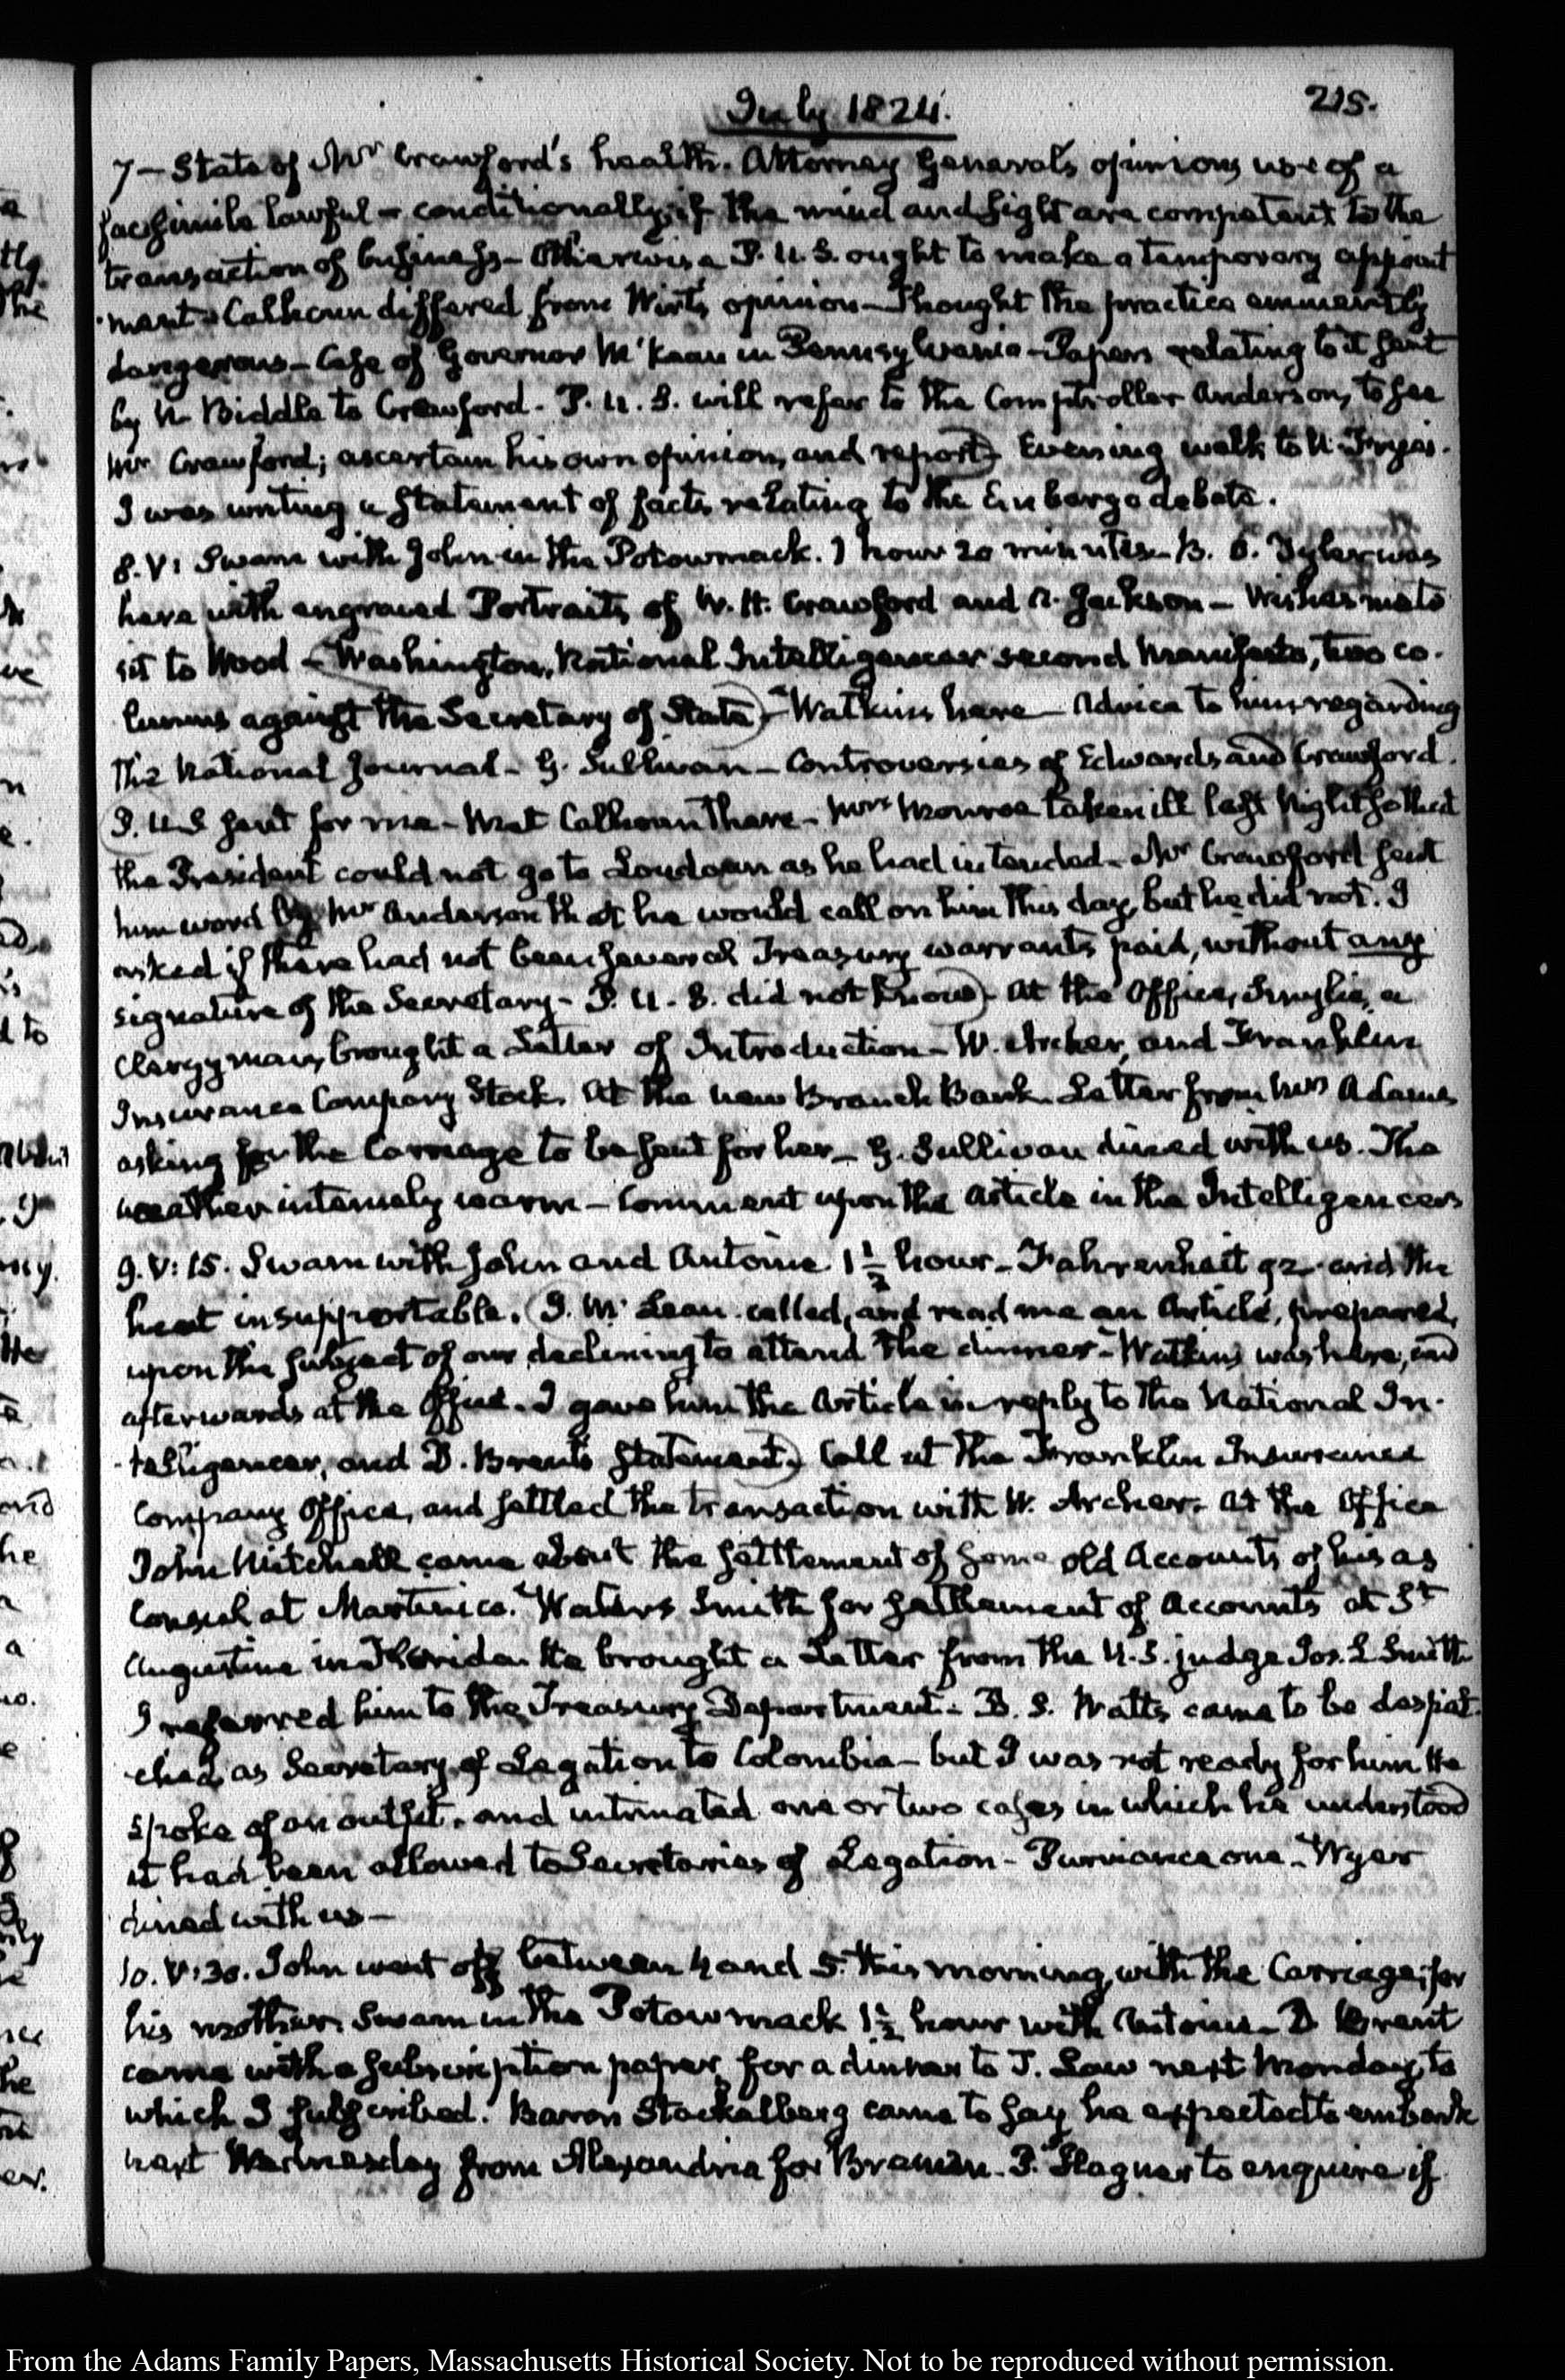 July 1824.
215.
7 — State of Mr Crawford's health. Attorney General's opinion, use of a
facsimile lawful — conditionally, if the mind and sight are competent to the
transaction of business — Otherwise P. U. S. ought to make a temporary appoint
ment. Calhoun differed from Wirt's opinion — Thought the practice eminently
dangerous — Case of Governor M'Kean in Pennsylvania — Papers relating to it sent
by N Biddle to Crawford. P. U. S. will refer to the Comptroller Anderson, to see
Mr Crawford; ascertain his own opinion, and report) Evening walk to N. Frye's.
I was writing a statement of facts relating to the Embargo debate.
8. V: Swam with John in the Potowmack. 1 hour 20 minutes — B. O. Tyler was
here with engraved Portraits of W. H. Crawford and A. Jackson — Wishes me to
sit to Wood — (Washington, National Intelligencer second Manifesto, two co-
lumns against the Secretary of State) — Watkins here — Advice to him regarding
the National Journal — G. Sullivan — Controversies of Edwards and Crawford.
(P. U. S sent for me — Met Calhoun there — Mrs Monroe taken ill last Night so that
the President could not go to Loudoun as he had intended — Mr Crawford sent
him word by Mr Anderson that he would call on him this day, but he did not. I
asked if there had not been several Treasury warrants paid, without any
signature of the Secretary — P. U. S. did not know) — At the Office, Smylie, a
Clergyman, brought a Letter of Introduction — W. Archer, and Franklin
Insurance Company Stock. At the new Branch Bank. Letter from Mrs Adams
asking for the Carriage to be sent for her — G. Sullivan dined with us. The
weather intensely warm — Comment upon the Article in the Intelligencer
9. V: 15. Swam with John and Antoine 1½ hour — Fahrenheit 92 and the
heat insupportable. (J. M'Lean called, and read me an Article, prepared,
upon the subject of our declining to attend the dinner — Watkins was here, and
afterwards at the Office. I gave him the Article in reply to the National In-
telligencer, and D. Brent's Statement.) Call at the Franklin Insurance
Company Office, and settled the transaction with W. Archer. At the Office
John Mitchell came about the settlement of some old Accounts of his as
Consul at Martinico. Waters Smith for settlement of Accounts at St
Augustine in Florida He brought a Letter from the U. S. judge Jos. L Smith
I referred him to the Treasury Department. B. S. Watts came to be despat-
ched, as Secretary of Legation to Colombia — but I was not ready for him He
spoke of an outfit, and intimated one or two cases in which he understood
it had been allowed to Secretaries of Legation — Purviance one — Wyer
dined with us —
10. V: 30. John went off between 4 and 5. this morning, with the Carriage, for
his mother. Swam in the Potowmack 1½ hour with Antoine — D Brent
came with a subscription paper for a dinner to T. Law next Monday, to
which I subscribed. Baron Stackelberg came to say he expected to embark
next Wednesday from Alexandria for Bremen. P. Hagner to enquire if
From the Adams Family Papers, Massachusetts Historical Society. Not to be reproduced without permission.